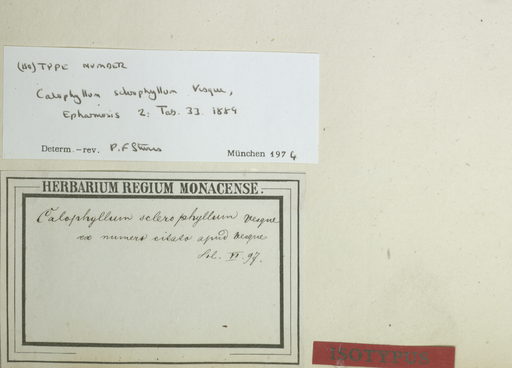 (HO)TYPE NUMBER
Calophyllum sclerophyllum Vesque,
Epharmosis 2: Tab. 33. 1889
Determ.-rev. P.F. Stevens
München 1974
HERBARIUM REGIUM MONACENSE.
Calophyllum sclerophyllum Vesque
ex numero citato apud Vesque
VI. 97.
ISOTYPUS